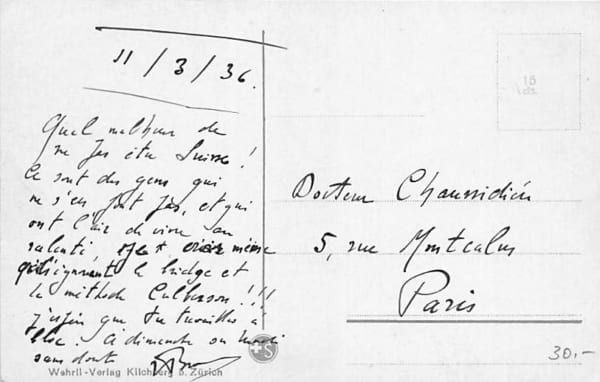 11/3/36.
Quel malheur de
ne pas être Suisse !
Ce sont des gens qui
ne s'en font pas, et qui
ont l'air de vivre au
ralenti, même
le bridge et
la méthode Culbertson !!!
j'espère que tu travailles à
bloc. A dimanche ou lundi
sans doute
Wehrli-Verlag Kilchberg b. Zürich
Docteur
5, rue Montcalm
Paris
30.-